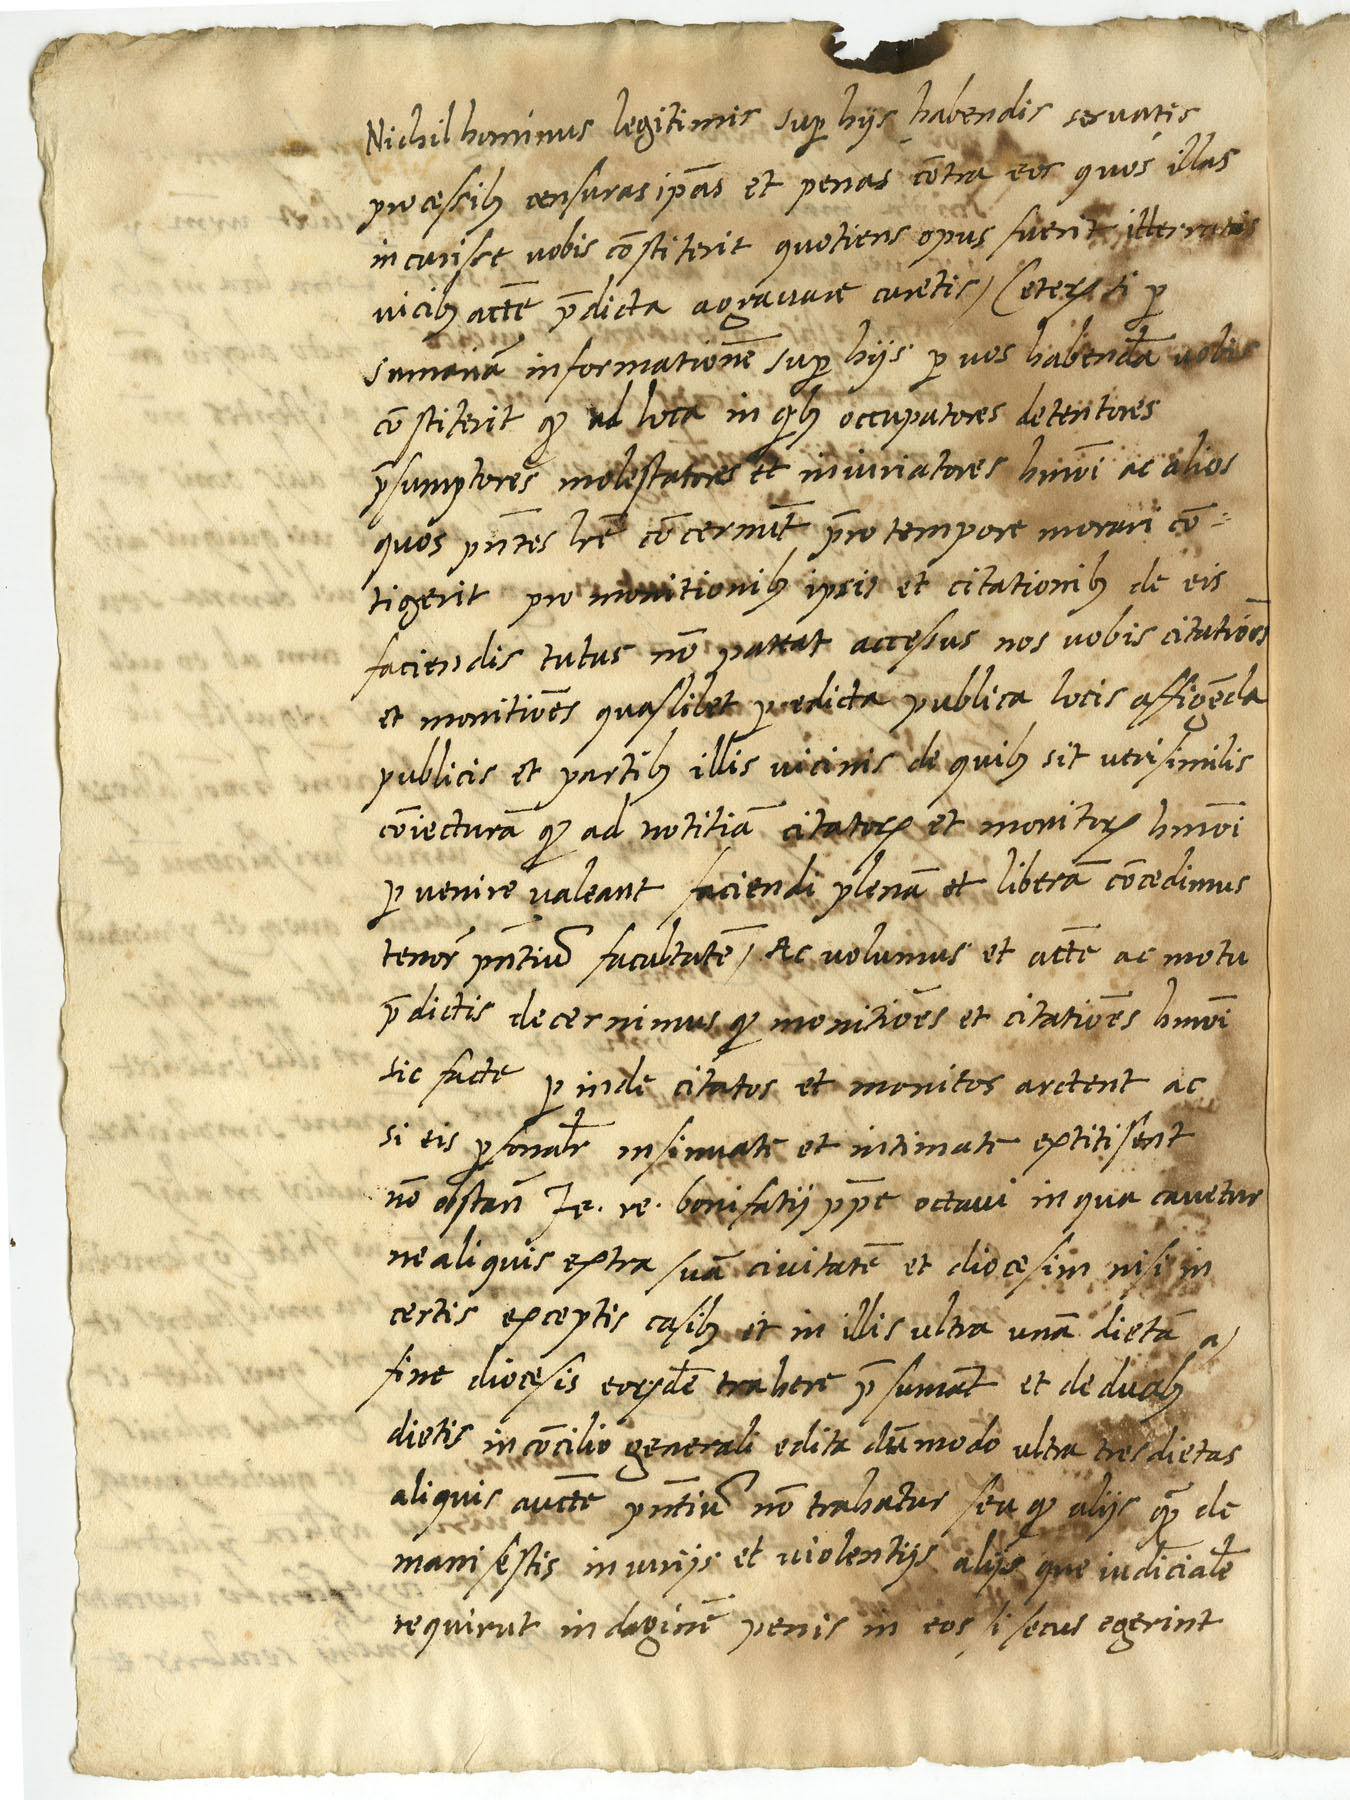 Nichilhominus legitimis sup hijs habendis servatis
processib; censuras ip̄as et penas cōtra eos quos illas
incurisse vobis cōstiterit quotiens opus fuerit itterratis
vicib; actē p̄dicta agravare curetis / Ceterꝝ si ꝑ
sūmariā informationē sup hijs ꝑ vos habendā vobis
cōstiterit ꝙ ad loca in qib; occupatores detentores
p̄sumptores molestatores et iniuriatores hmōi ac alios
quos pn̄tes lrē cōcernūt p̄ro tempore morari cō=
tigerit pro monitionib; ipsis et citationib; de eis
faciendis tutus nō pateat accessus nos vobis citatiōes
et monitiōes quaslibet ꝑ edicta publica locis affigēda
publicis et partib; illis vicinis de quib; sit verisimilis
cōiecturā ꝙ ad notitiā citatoꝝ et monitoꝝ hmōi
ꝑ venire valeant faciendi plenā et liberā cōcedimus
tenor̄ pn̄tiū facultatē / Ac volumus et actē ac motu
p̄dictis decernimus ꝙ monitiōes et citatiōes hmōi
sic facte ꝑ inde citatos et monitos arctent ac
si eis ꝑsonalr̄ insinuate et intimate extitissent
nō obstan̄ Fe. re. bonifatij pp̄e octavi in qua cavetur
ne aliquis extra suā civitatē et diocesim nisi in
certis exceptis casib; et in illis ultra unā dietā a /
fine diocesis eorꝝdē trahere p̄sumāt et de duab;
dietis in cōcilio generali edita dūmodo ultra tres dietas
aliquis auctē pn̄tiū nō trahatur seu ꝙ alijs qā de
manifestis iniurijs et violentijs alijs que iudicialē
requirūt indaginē penis in eos si secus egerint